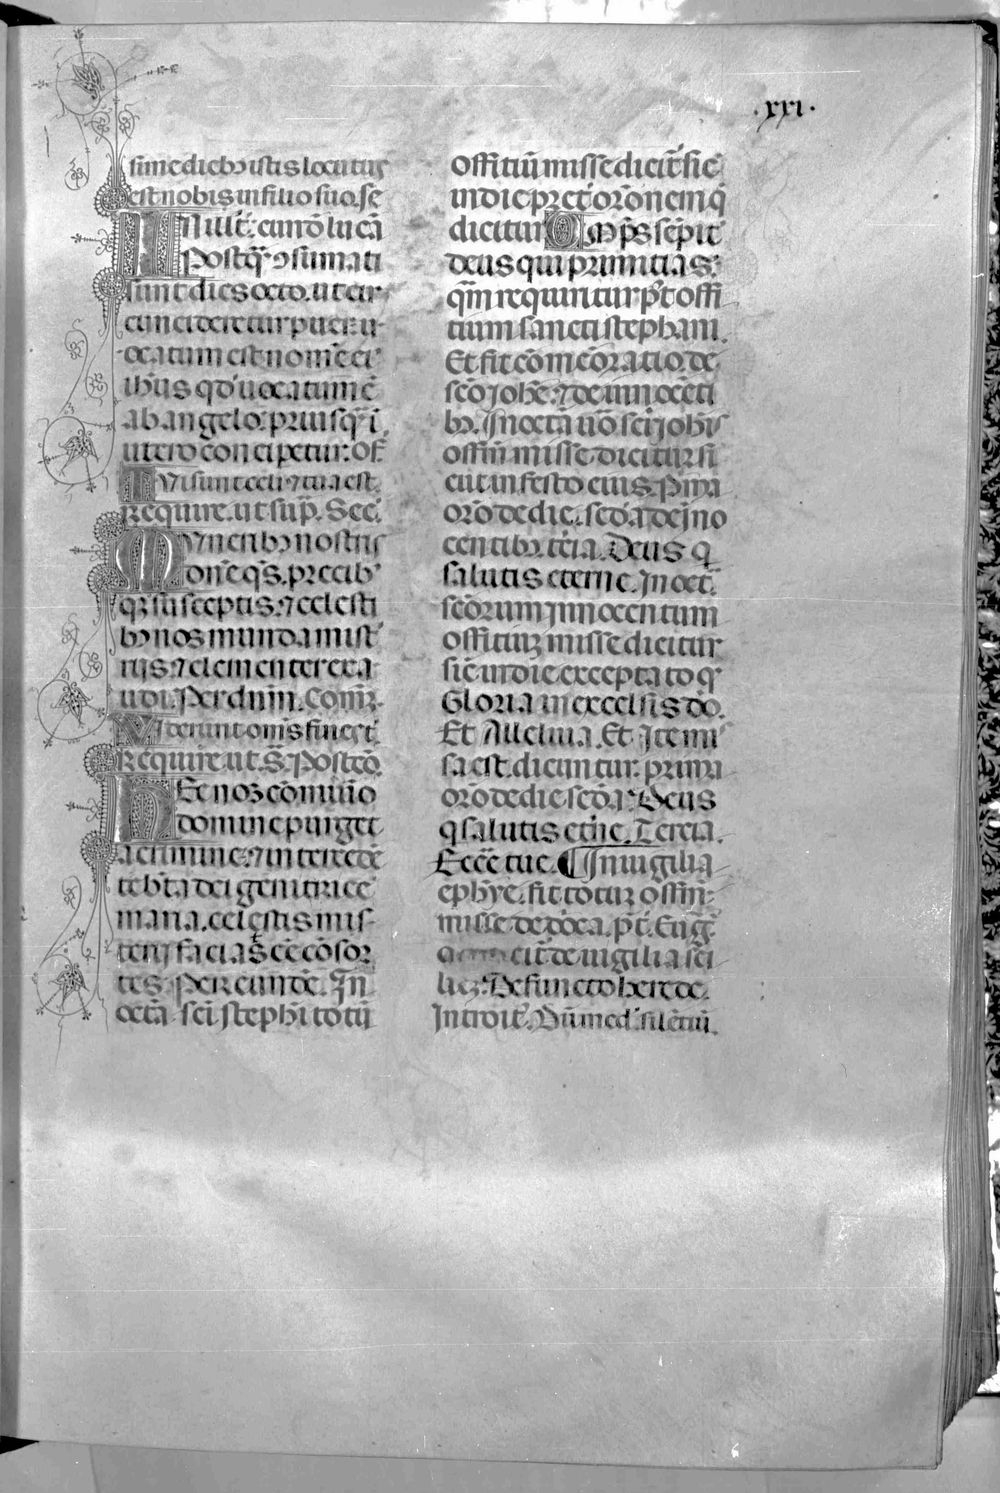 ·xxi·
sime dieb; istis locutus
est nobis in filio suo. se
In illt̄. cum ro lucā
Postq̄ ꝯsumati
sunt dies octo. ut cir
cuncideretur puer: u
ocatum est nomē ei
ihūs qd̓ uocatum ē
ab angelo: priusq̄ ī
utero conciperetur: Of.
Tui sunt celi ⁊ tua est.
Require. ut sup̄. Sec̄.
Munerib; nostris
dn̄e q̄s. precib;
q̨ susceptis: ⁊ celesti
b; nos munda mist̄
riis ⁊ clementer exa
udi. Per dn̄m. Com̄.
Viderunt om̄s fines t̄.
Require. ut. S̄. Postcō.
Hec nos cōmunio
domine purget
a crimine: ⁊ intercedē
te bt̄a dei genitrice
maria. celestis mis
terij faciat ēe cōsor
tes. Per eundē. In
octā sc̄i stephi totū
offitiū misse dicit̄ sic̄
in die pret̄ orōnem q̄
dicitur Omp̄s sep̄it̄
deus qui primitias:
q̄m requiritur p̄t offi
tium sancti stephani.
Et fit cōmēoratio de
scō johe: ⁊ de innocēti
b;. In octā uo sc̄i johis
offm̄ misse dicitur si
cut in festo eius. Prīa
orō de die. scd̓a de jno
centib;. t̄cia. Deus q̄
salutis eterne. In oct̄.
scōrum jnnocentum
offitiuz misse dicitur
sic̄ in die excepta to q̄
Gloria in excelsis do.
Et Allelluia. Et Ite mi
sa est. dicuntur. prima
orō de die scd̓a: Deus
q̄ salutis et̄ne. Tercia.
Ecc̄e tue. ¶ In uigilia
ephȳe. fit totuz offm̄:
misse de dōca. p̄t̄. Eug̅.
cit̄ de uigilia sc̄i
licz: Defuncto herode.
Introit̄. Dū med̓. silētiū.